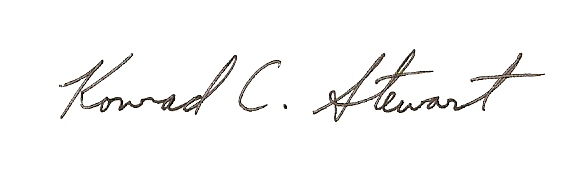 Konrad C. Stewart